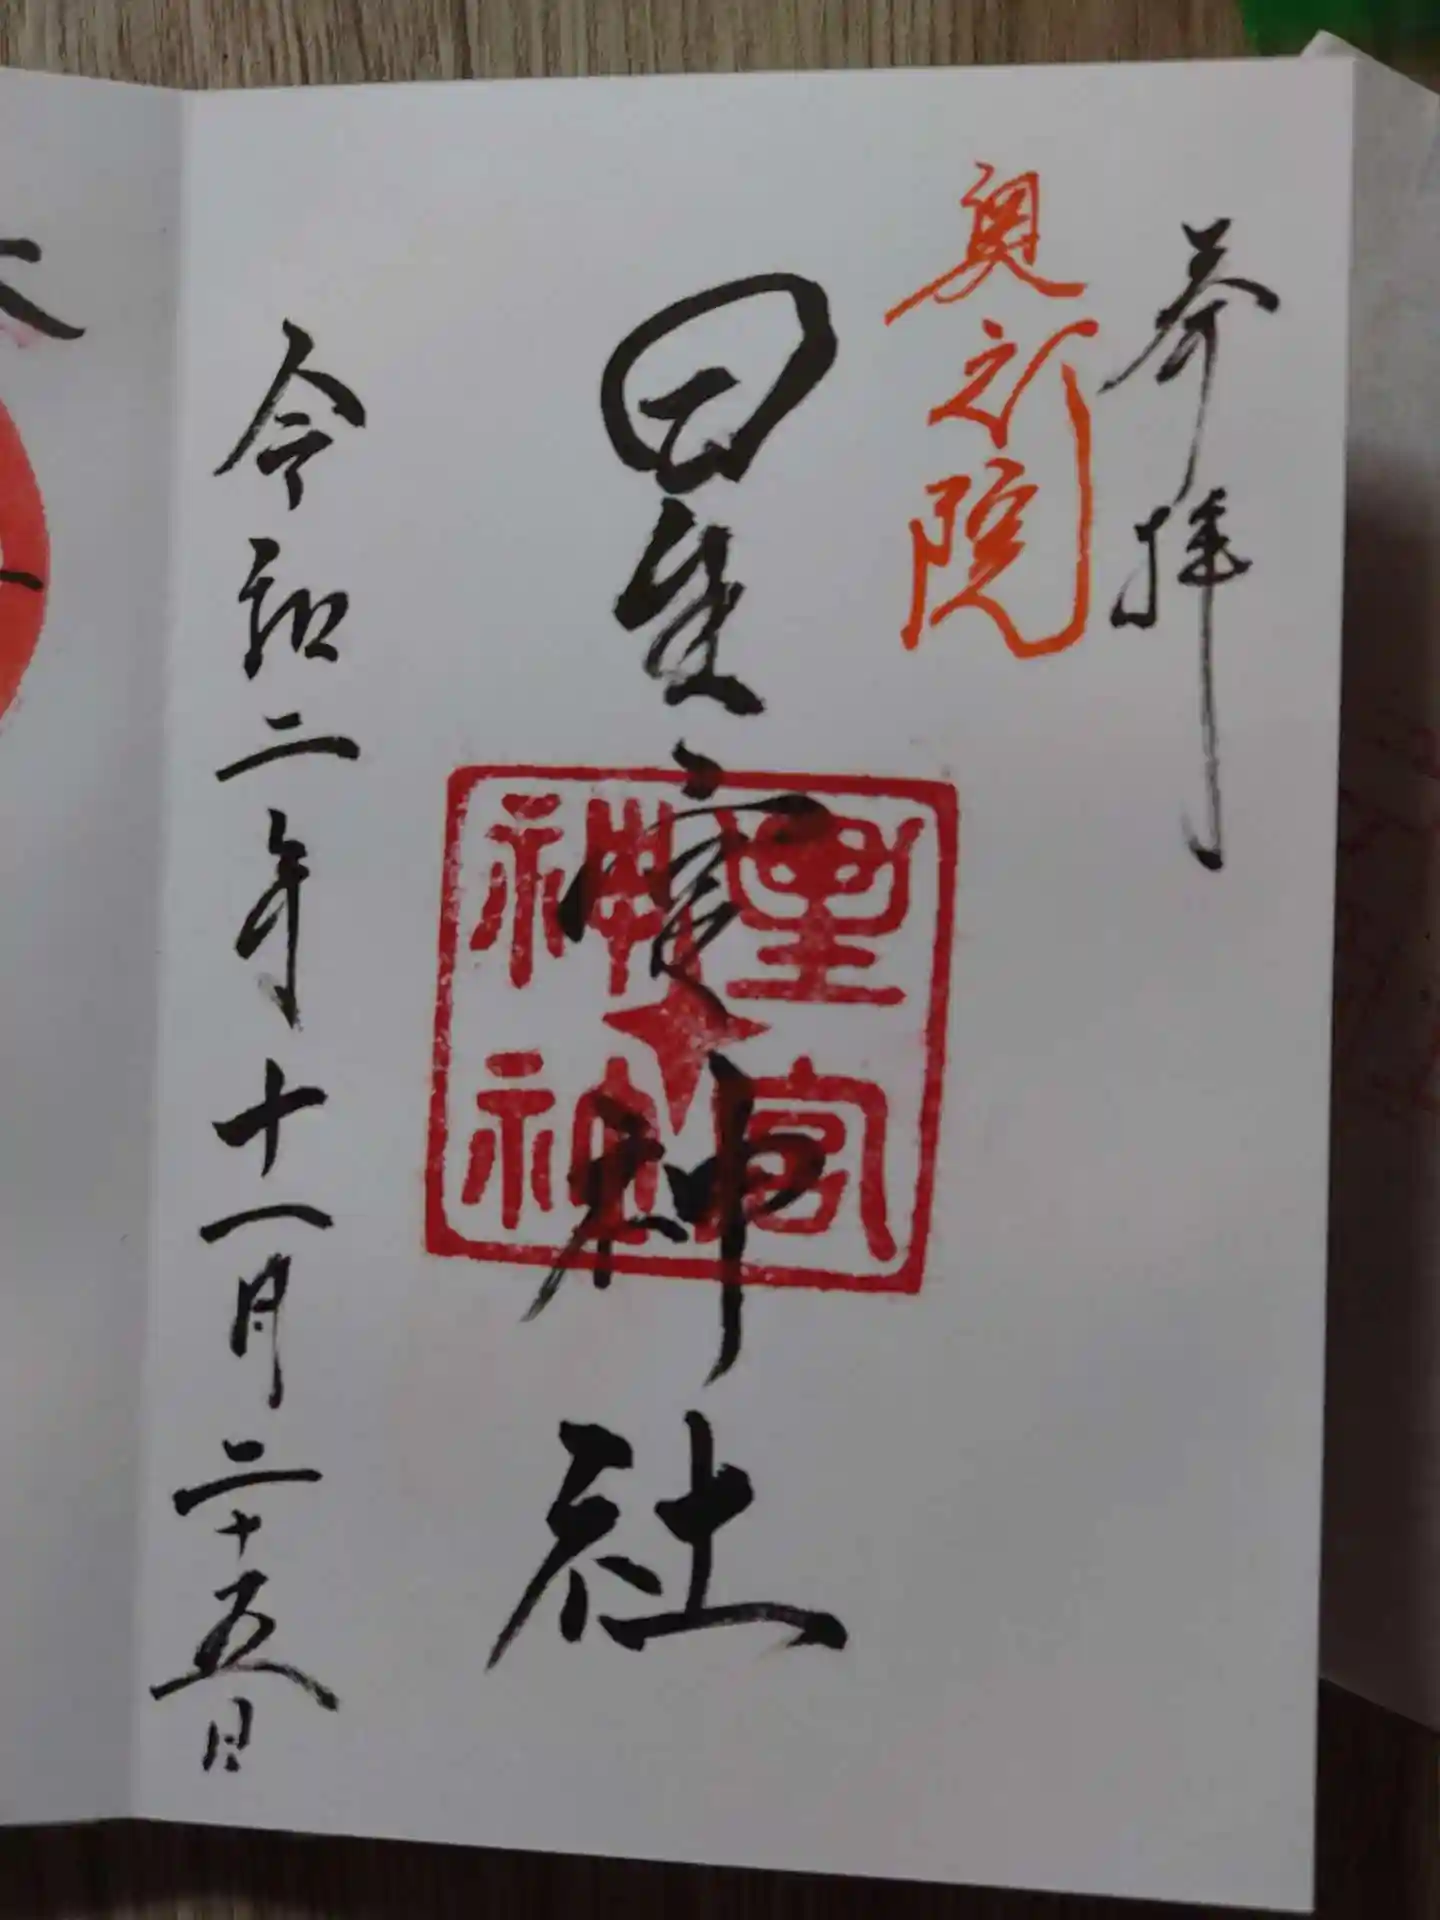 奉拝
奥院
星宮神社
星宮神社
令和二年十一月二十五日